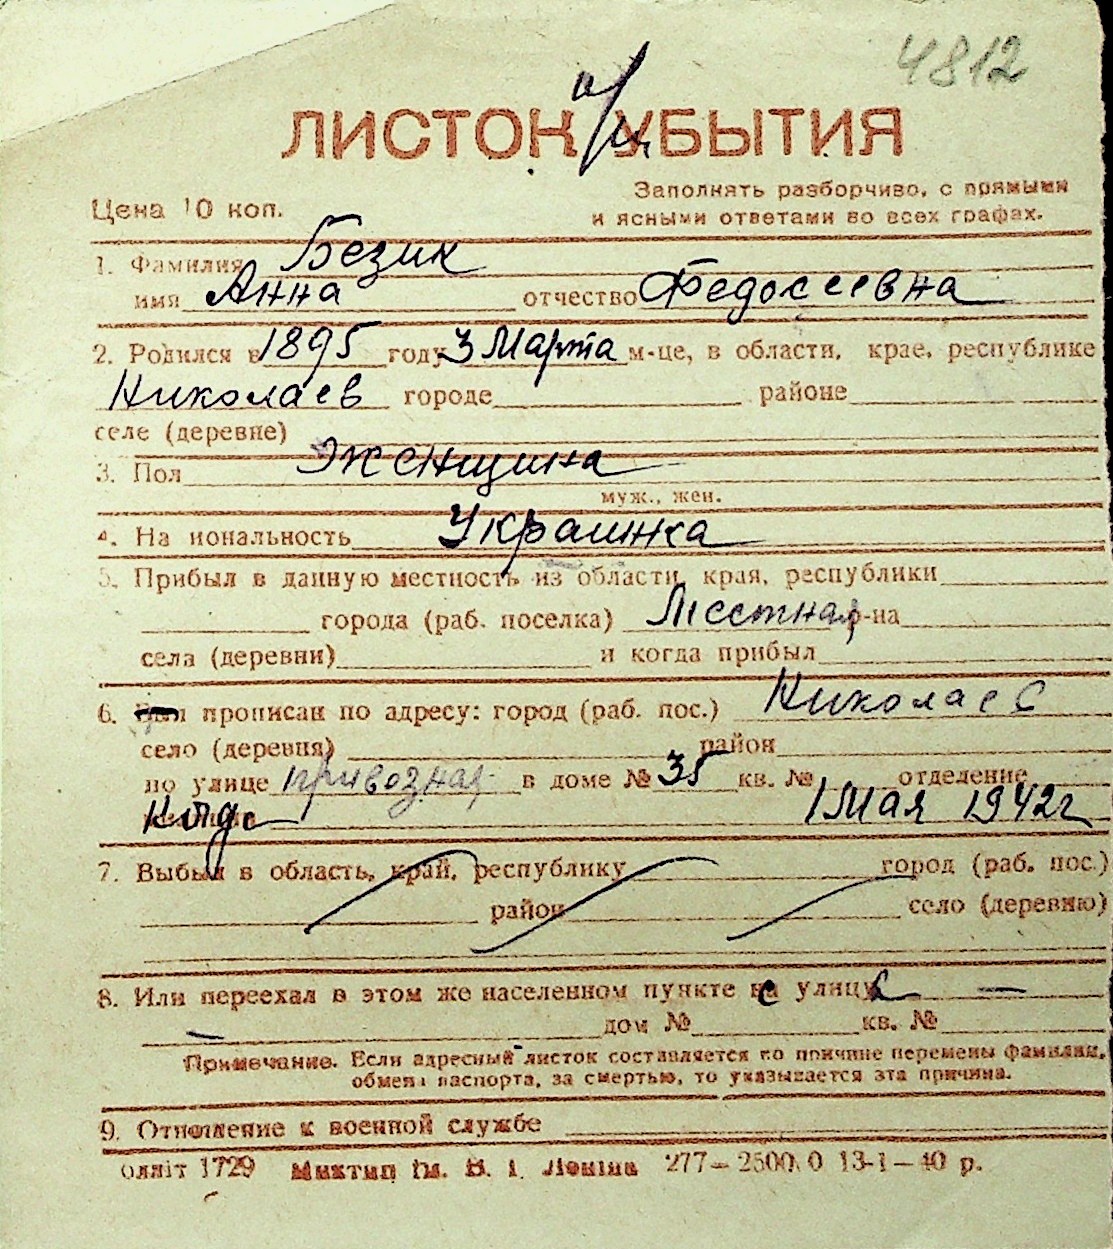 4812
ЛИСТОК УБЫТИЯ
Цена 10 коп.
Заполнять разборчиво, с прямыми
и ясными ответами во всех графах.
1. Фамилия Безик
имя Анна отчество Федосеевна
2. Родился в 1895 году 3 Марта м-це, в области, крае, республике
Николаев городе районе
селе (деревне)
3. Пол Женщина
муж., жен.
4. На иональность Украинка
5. Прибыл в данную местность из области, края, республики
города (раб. поселка) Местная р-на
села (деревни) и когда прибыл
6. Был прописан по адресу: город (раб. пос.) Николаев
село (деревня) район
по улице привозная в доме № 35 кв. № отделение
1 Мая 1942г
7. Выбыл в область, край, республику город (раб. пос.)
район село (деревню)
8. Или переехал в этом же населенном пункте с улицы —
— дом № кв. №
Примечание. Если адресный листок составляется по причине перемены фамилии,
обмена паспорта, за смертью, то указывается эта причина.
9. Отношение к военной службе
олліт 1729 Миктип ім. В. І. Леніна 277—2500,0 13-1—40 р.